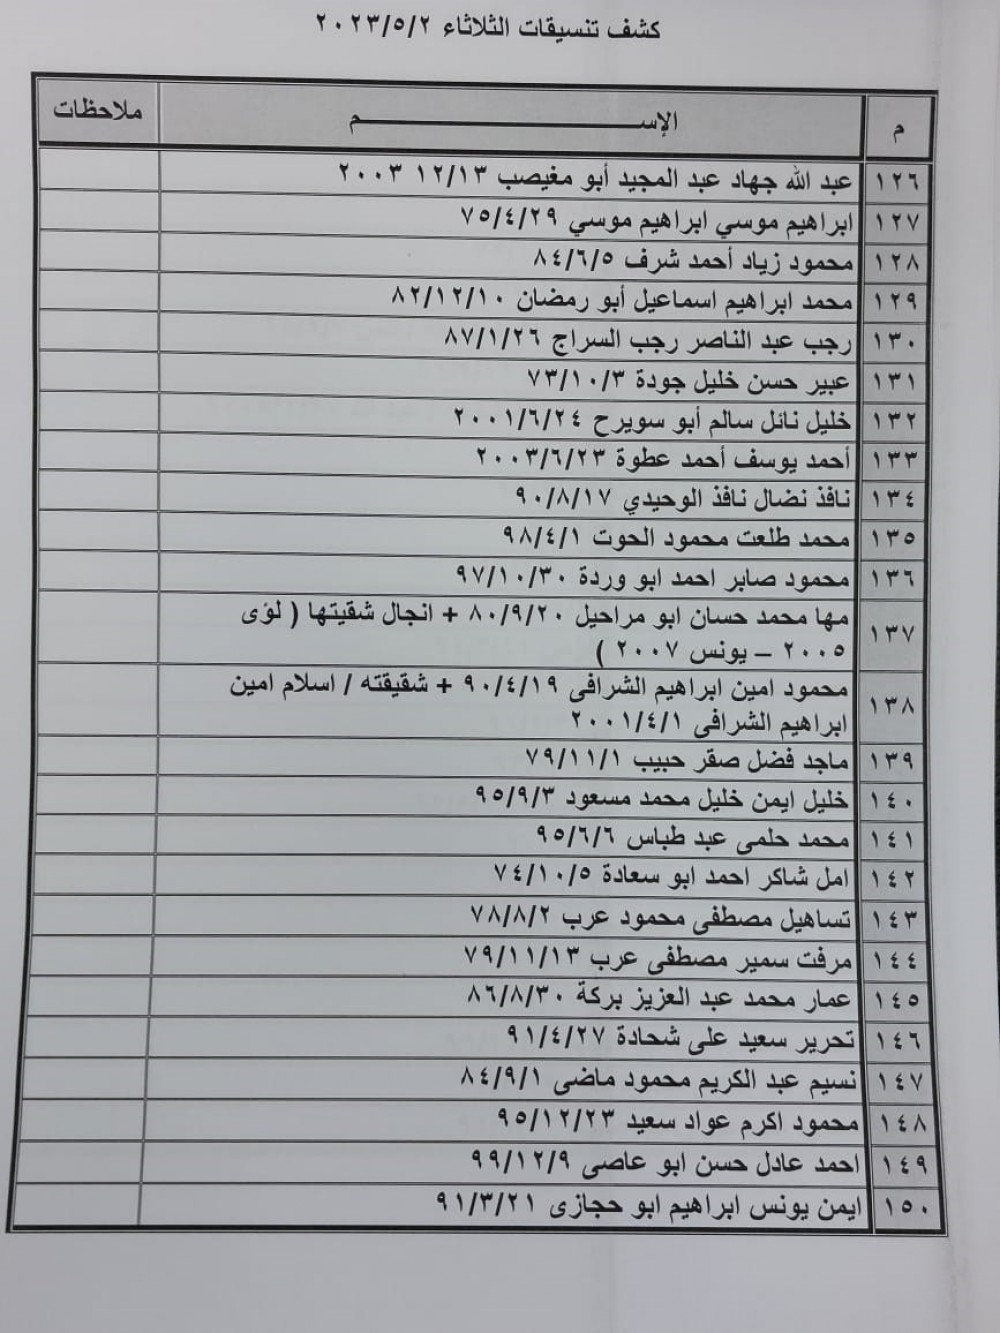 كشف تنسيقات الثلاثاء ٢٠٢٣/٥/٢
م الإســـــم ملاحظات
١٢٦ عبد الله جهاد عبد المجيد أبو مغيصب ١٢/١٣ ٢٠٠٣
١٢٧ ابراهيم موسي ابراهيم موسي ٧٥/٤/٢٩
١٢٨ محمود زياد أحمد شرف ٨٤/٦/٥
١٢٩ محمد ابراهيم اسماعيل أبو رمضان ٨٢/١٢/١٠
١٣٠ رجب عبد الناصر رجب السراج ٨٧/١/٢٦
١٣١ عبير حسن خليل جودة ٧٣/١٠/٣
١٣٢ خليل نائل سالم أبو سويرح ٢٠٠١/٦/٢٤
١٣٣ أحمد يوسف أحمد عطوة ٢٠٠٣/٦/٢٣
١٣٤ نافذ نضال نافذ الوحيدي ٩٠/٨/١٧
١٣٥ محمد طلعت محمود الحوت ٩٨/٤/١
١٣٦ محمود صابر احمد ابو وردة ٩٧/١٠/٣٠
١٣٧ مها محمد حسان ابو مراحيل ٨٠/٩/٢٠ + انجال شقيتها ( لؤى
٢٠٠٥ – يونس ٢٠٠٧ )
١٣٨ محمود امين ابراهيم الشرافى ٩٠/٤/١٩ + شقيقته / اسلام امين
ابراهيم الشرافى ٢٠٠١/٤/١
١٣٩ ماجد فضل صقر حبيب ٧٩/١١/١
١٤٠ خليل ايمن خليل محمد مسعود ٩٥/٩/٣
١٤١ محمد حلمى عبد طباس ٩٥/٦/٦
١٤٢ امل شاكر احمد ابو سعادة ٧٤/١٠/٥
١٤٣ تساهيل مصطفى محمود عرب ٧٨/٨/٢
١٤٤ مرفت سمير مصطفى عرب ٧٩/١١/١٣
١٤٥ عمار محمد عبد العزيز بركة ٨٦/٨/٣٠
١٤٦ تحرير سعيد على شحادة ٩١/٤/٢٧
١٤٧ نسيم عبد الكريم محمود ماضى ٨٤/٩/١
١٤٨ محمود اكرم عواد سعيد ٩٥/١٢/٢٣
١٤٩ احمد عادل حسن ابو عاصى ٩٩/١٢/٩
١٥٠ ايمن يونس ابراهيم ابو حجازى ٩١/٣/٢١